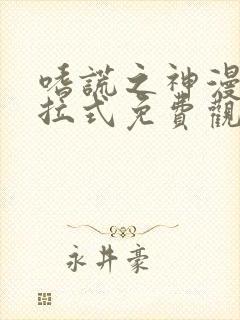 嗜謊之神漫
拉式免費觀
永井豪